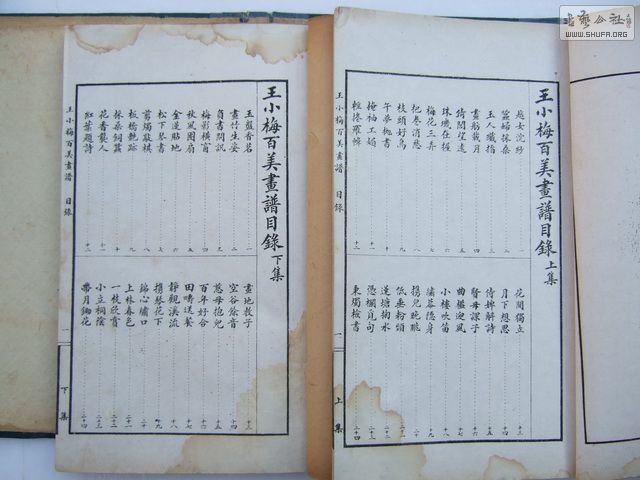 書藝公社
WWW.SHUFA.ORG
王小梅百美畫譜目錄 上集
越女浣紗 一
蠶婦採桑 二
玉人纖指 三
畫船載月 四
倚閣望遠 五
珠璣在握 六
梅花三弄 七
把卷消愁 八
枝頭好鳥 九
掩袖工媚 十
午夢拋書 十一
輕搭羅幃 十二
花間獨立 十三
月下想思 十四
倚梅解詩 十五
賢母課子 十六
曲檻迎風 十七
小樓吹笛 十八
繡幕隱身 十九
攜兒晚眺 二十
低垂粉頸 二十一
蓮塘掬水 二十二
憑欄覓句 二十三
秉燭檢書 二十四
王小梅百美畫譜 目錄 一 上集
王小梅百美畫譜目錄 下集
玉盤香茗 一
畫竹生姿 二
負書問訊 三
梅影橫窗 四
秋風團扇 五
金蓮貼地 六
松下琴書 七
剪燭敲棋 八
板橋艷跡 九
採桑飼蠶 十
花香襲人 十一
紅葉題詩 十二
畫地教子 十三
空谷餘音 十四
慈母抱兒 十五
百年好合 十六
田疇送饁 十七
靜觀溪流 十八
攜琴花下 十九
錦心繡口 二十
上林春色 二十一
一枝欣賞 二十二
小立桐陰 二十三
帶月鋤花 二十四
王小梅百美畫譜 目錄 一 下集